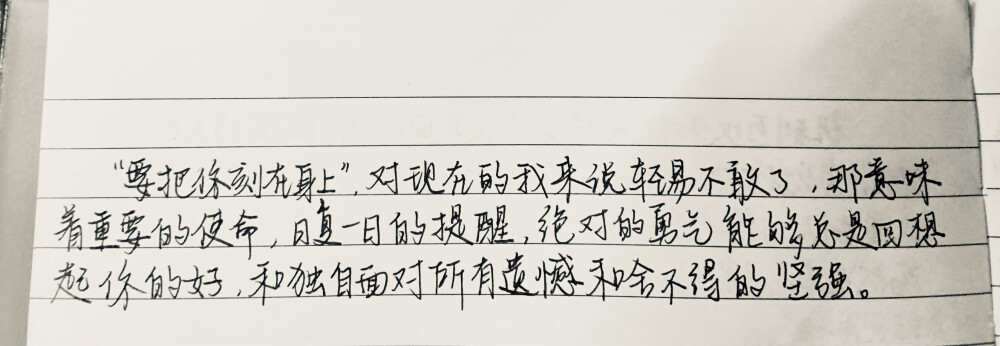 “要把你刻在身上”，对现在的我来说轻易不敢了，那意味
着重要的使命，日复一日的提醒，绝对的勇气能够总是回想
起你的好，和独自面对所有遗憾和舍不得的坚强。